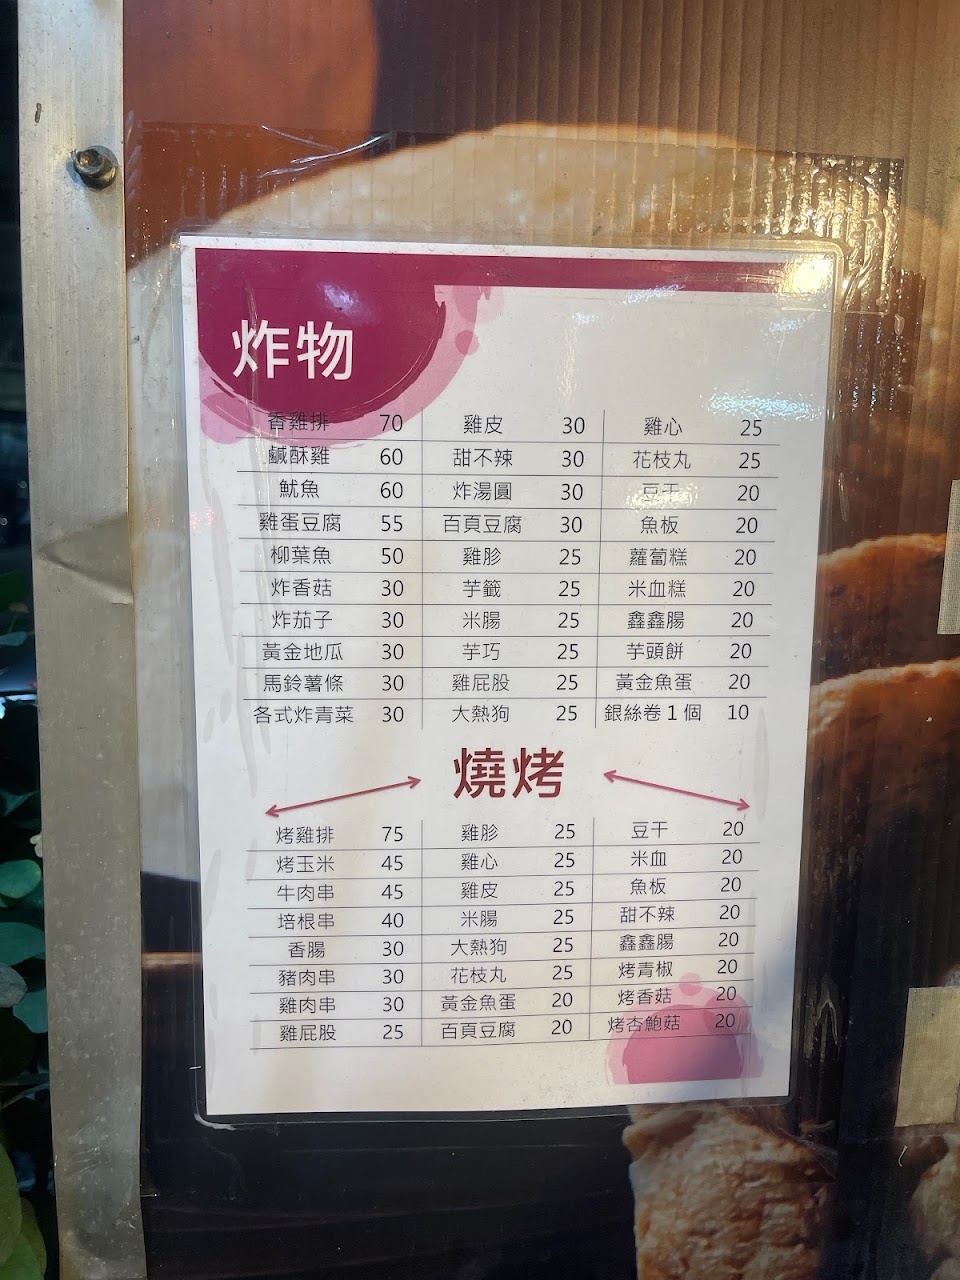 炸物
香雞排 70 雞皮 30 雞心 25
鹹酥雞 60 甜不辣 30 花枝丸 25
魷魚 60 炸湯圓 30 豆干 20
雞蛋豆腐 55 百頁豆腐 30 魚板 20
柳葉魚 50 雞胗 25 蘿蔔糕 20
炸香菇 30 芋籤 25 米血糕 20
炸茄子 30 米腸 25 鑫鑫腸 20
黃金地瓜 30 芋巧 25 芋頭餅 20
馬鈴薯條 30 雞屁股 25 黃金魚蛋 20
各式炸青菜 30 大熱狗 25 銀絲卷1個 10
燒烤
烤雞排 75 雞胗 25 豆干 20
烤玉米 45 雞心 25 米血 20
牛肉串 45 雞皮 25 魚板 20
培根串 40 米腸 25 甜不辣 20
香腸 30 大熱狗 25 鑫鑫腸 20
豬肉串 30 花枝丸 25 烤青椒 20
雞肉串 30 黃金魚蛋 20 烤香菇 20
雞屁股 25 百頁豆腐 20 烤杏鮑菇 20